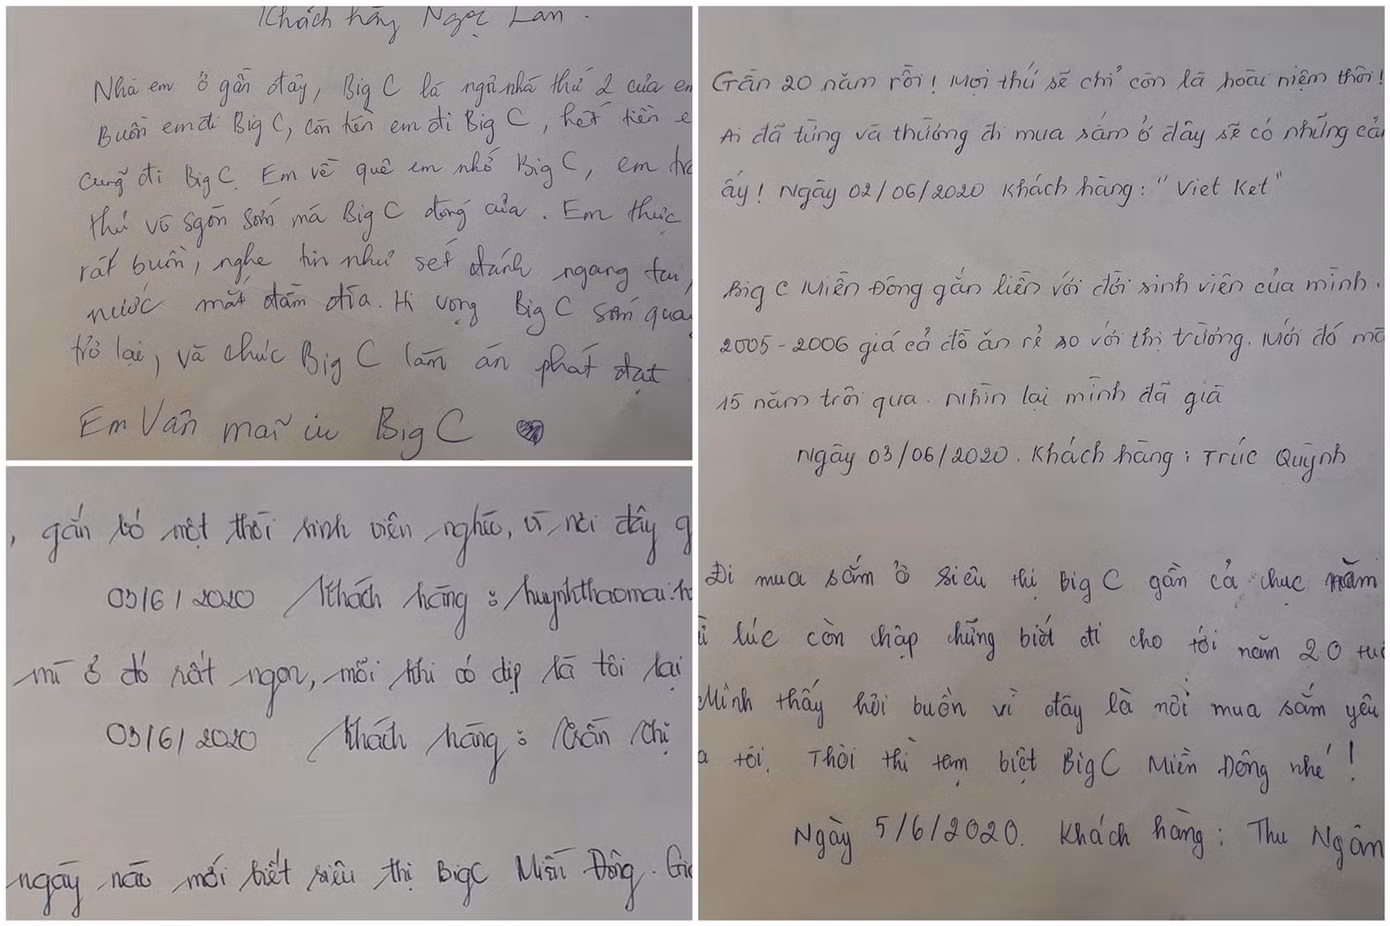 Khách hàng Ngọc Lan.
Nhà em ở gần đây, Big C là ngôi nhà thứ 2 của em
Buồn em đi Big C, còn tiền em đi Big C, hết tiền e
cũng đi Big C. Em về quê em nhớ Big C, em tr
thứ vô sgòn sớm mà Big C đóng cửa. Em thực
rất buồn, nghe tin như sét đánh ngang tai,
nước mắt đầm đìa. Hi vọng Big C sớm qua
trở lại, và chúc Big C làm ăn phát đạt
Em Vẫn mãi iu Big C
, gắn bó một thời sinh viên nghèo, vì nơi đây g
03/6/2020 Khách hàng : huynhthaomai.h
mì ở đó rất ngon, mỗi khi có dịp là tôi lại
03/6/2020 Khách hàng : Trần Chị
ngày nào mới biết siêu thị BigC Miền Đông. Gi
Gần 20 năm rồi! Mọi thứ sẽ chỉ còn là hoài niệm thôi!
Ai đã từng và thường đi mua sắm ở đây sẽ có những cả
ấy! Ngày 02/06/2020 Khách hàng: "Viet Ket"
Big C Miền Đông gắn liền với đời sinh viên của mình.
2005-2006 giá cả đồ ăn rẻ so với thị trường. Mới đó mà
15 năm trôi qua. Nhìn lại mình đã già
Ngày 03/06/2020. Khách hàng: Trúc Quỳnh
Đi mua sắm ở siêu thị Big C gần cả chục năm
lúc còn chập chững biết đi cho tới năm 20 tuổ
Mình thấy hơi buồn vì đây là nơi mua sắm yêu
a tôi. Thôi thì tạm biệt BigC Miền Đông nhé!
Ngày 5/6/2020. Khách hàng: Thu Ngân